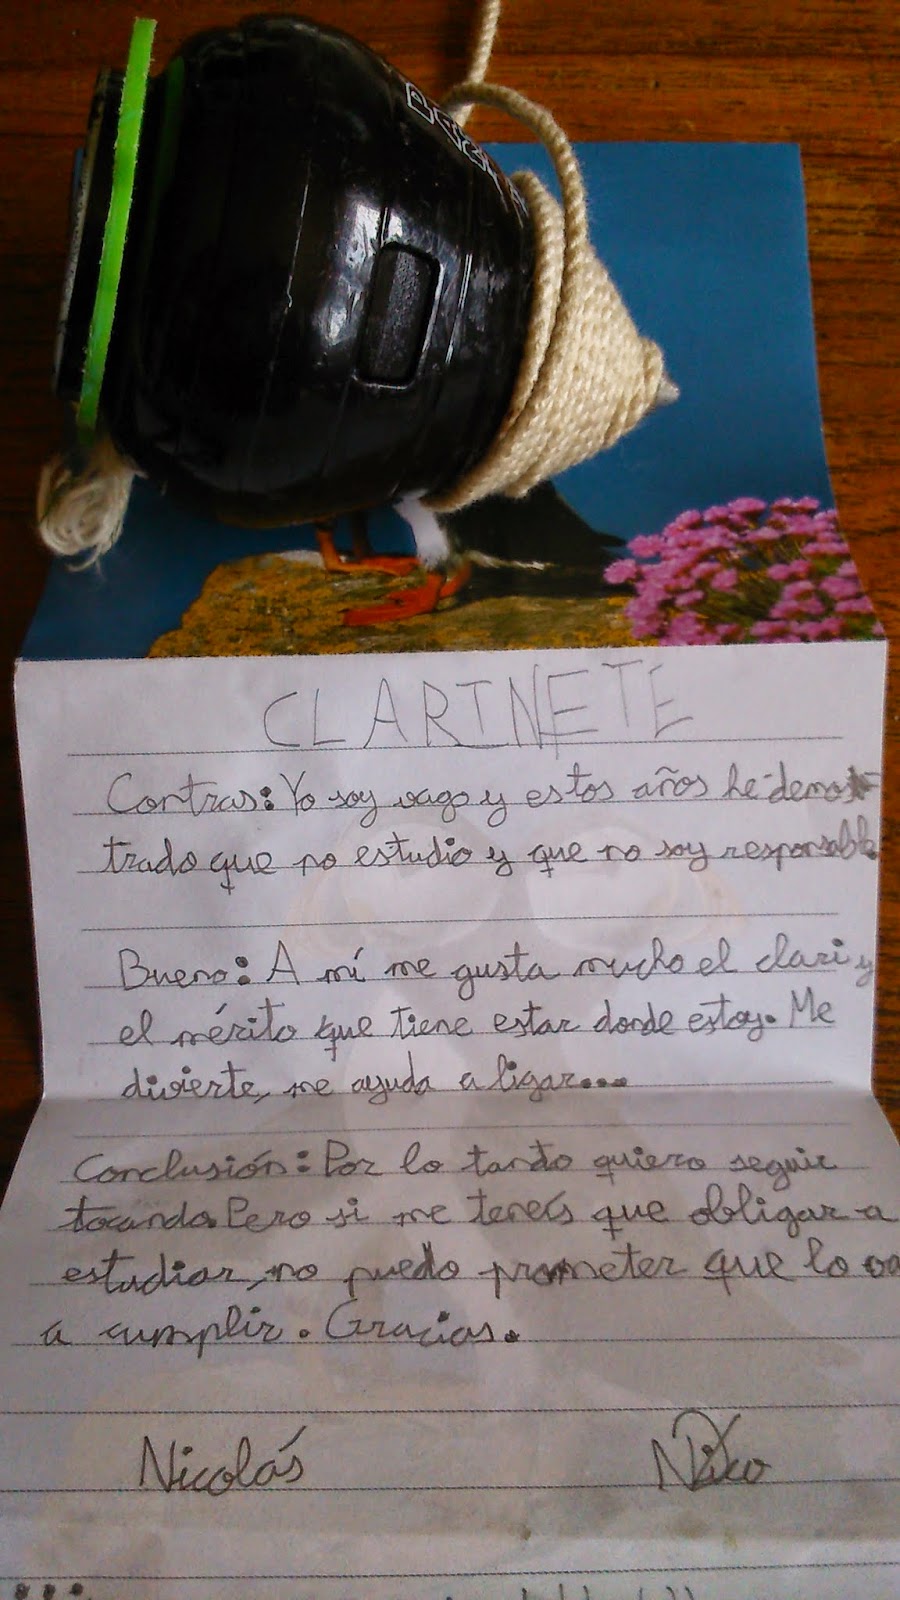 CLARINETE
Contras: Yo soy vago y estos años he demos
trado que no estudio y que no soy responsable
Bueno: A mí me gusta mucho el clari y
el mérito que tiene estar donde estoy. Me
divierte, me ayuda a ligar...
Conclusión: Por lo tanto quiero seguir
tocando. Pero si me tenéis que obligar a
estudiar, no puedo prometer que lo va
a cumplir. Gracias.
Nicolás Nico